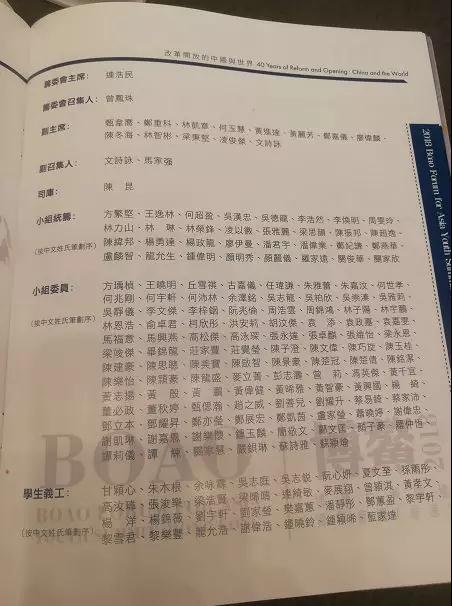 改革開放的中國與世界 40 Years of Reform and Opening : China and the World
籌委會主席： 連浩民
籌委會召集人： 曾鳳珠
副主席： 甄韋喬、鄭重科、林凱章、何玉慧、黃進達、黃麗芳、鄭嘉儀、廖偉麟、
陳冬海、林智彬、梁秉堅、凌俊傑、文詩詠
副召集人： 文詩詠、馬家強
司庫： 陳 昆
小組統籌： 方繁堅、王逸林、何超盈、吳漢忠、吳德龍、李浩然、李煥明、周雯玲、
(按中文姓氏筆劃序) 林力山、林 琳、林榮鋒、凌以徽、張雅麗、梁思韻、陳張邦、陳超逸、
陳緯邦、楊勇達、楊政龍、廖伊曼、潘君宇、潘偉業、鄭紀謙、鄭燕華、
盧麟智、龍允生、鍾偉明、顏明秀、顏麗儀、羅家遠、關俊華、關家欣
小組委員： 方瑀楨、王曉明、丘雪祺、古嘉儀、任瑋謙、朱雅蕾、朱嘉汶、何世孝、
(按中文姓氏筆劃序) 何兆剛、何宇軒、何沛林、余澤銘、吳志龍、吳柏欣、吳崇濂、吳雅莉、
吳靜儀、李文傑、李梓銦、阮兆倫、周浩雲、周錦鴻、林子陽、林宇鵬、
林恩浩、俞卓君、柯欣彤、洪安莉、胡汶傑、袁 添、袁政基、袁嘉雯、
馬福意、馬興燕、高松傑、高泳琛、張永達、張卓麟、張維怡、梁永恩、
梁竣傑、畢錦龍、莊家豐、莊覺瑩、陳子澄、陳文偉、陳巧旋、陳玉桂、
陳建豪、陳思聰、陳美寶、陳啟智、陳景豪、陳楚冠、陳楚倩、陳銘潔、
陳樂怡、陳穎豪、陳龍盛、麥立菁、彭志濤、曾 莉、馮英傑、黃千宜、
黃志揚、黃 殷、黃 鵬、黃偉健、黃晞雅、黃智豪、黃興國、楊 綺、
董必政、董秋婷、甄偲瀚、趙之威、劉善兒、劉耀升、蔡易錡、蔡家沛、
鄧立本、鄧耀昇、鄭亦瑩、鄭展宏、鄭凱茵、盧家瑩、蕭曉婷、謝偉忠、
謝凱琳、謝嘉恩、謝樂懷、鍾玉麟、簡敬文、鄺文匡、顏子豪、羅伊恒、
譚莉儀、譚 幹、關家慧、嚴釧琳、蘇詩雅、蘇穎瑜
學生義工： 甘穎心、朱木根、余咏霖、吳志庭、吳志悅、阮心妍、夏文至、孫雨彤、
(按中文姓氏筆劃序) 高汝瑋、張浚樂、梁浩賢、梁晞晴、連綺敏、麥展翔、曾穎淇、黃孝文、
楊 洋、楊錦薇、劉宇軒、劉家瑩、樊嘉蕙、潘靜彤、鄧蕙盈、黎宇軒、
黎雪君、黎樂豐、龍允浩、謝偉浩、鍾曉鈴、鍾穎晞、藍家煌
2018 Boao Forum for Asia Youth Summit
BOAO
博鰲